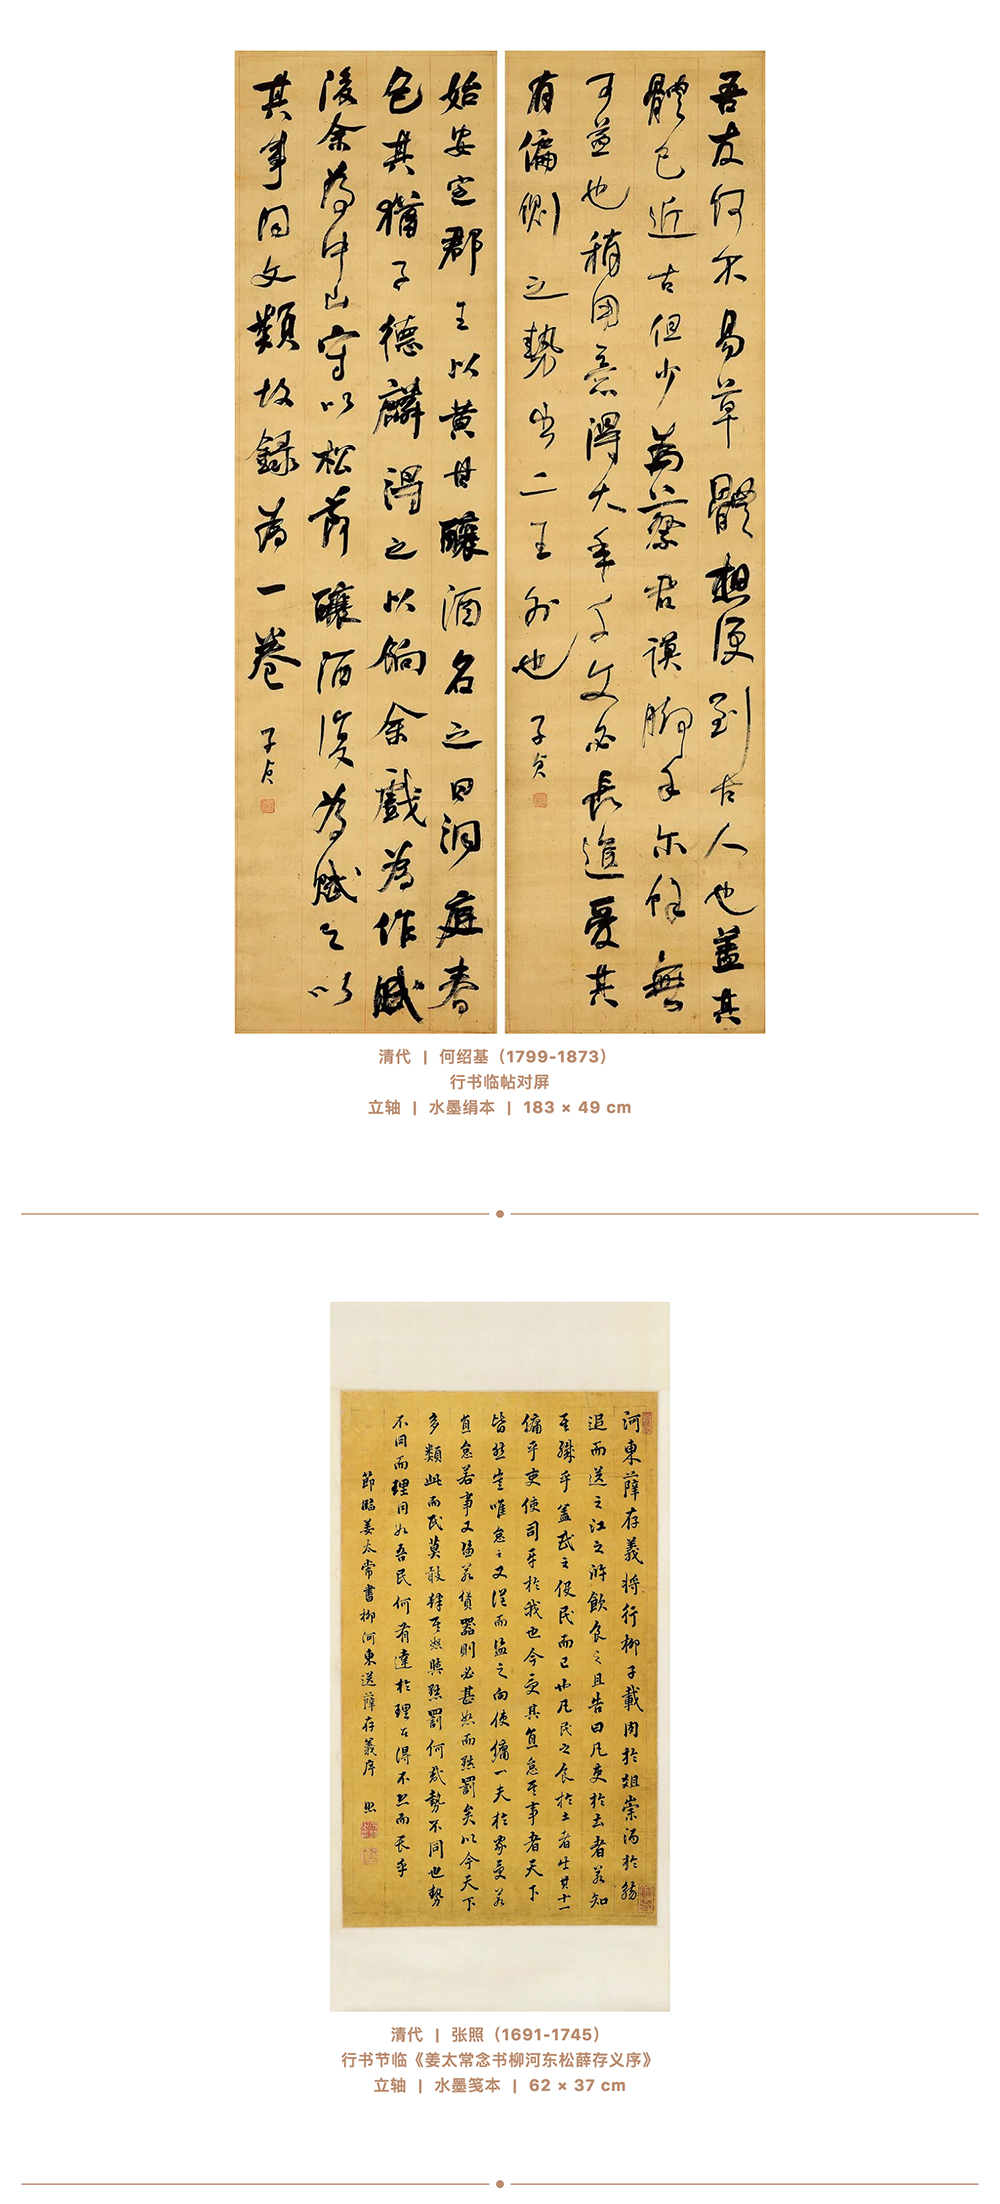 吾友何尔易草體想便到古人也盖其
體已近古但少為蔡君謨脚手尔餘無
可益也稍用意得大年千文必長進爱其
有偏側之勢出二王外也 子貞
始安定郡王以黄甘釀酒名之曰洞庭春
色其猶子德麟得之以餉余戲為作賦
後余為中山守以松節釀酒復為賦之以
其事同文類故録為一卷 子貞
清代 | 何绍基（1799-1873）
行书临帖对屏
立轴 | 水墨绢本 | 183 × 49 cm
河東薛存義将行柳子載肉於俎崇酒於觴
追而送之江之滸飲食之且告曰凡吏於土者若知
其職乎盖民之役民而已也凡民之食於土者出其十一
傭乎吏使司平於我也今受其直怠其事者天下
皆然豈唯怠之又從而盗之向使傭一夫於家受若
直怠若事又盗若貨器則必甚怒而黜罰矣以今天下
多類此而民莫敢肆其怒與黜罰何哉勢不同也勢
不同而理同如吾民何有達於理者得不恐而畏乎
節臨姜太常書柳河東送薛存義序 照
清代 | 张照（1691-1745）
行书节临《姜太常念书柳河东松薛存义序》
立轴 | 水墨笺本 | 62 × 37 cm